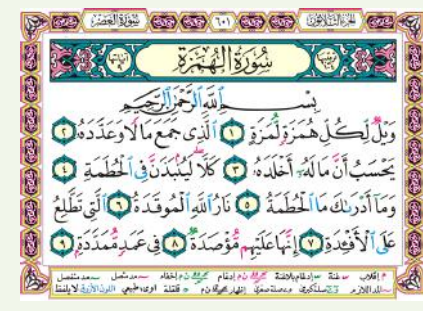 الجزء الثلاثون ٦٠١ سورة العصر
سورة الهمزة
بِسْمِ اللَّهِ الرَّحْمَٰنِ الرَّحِيمِ
وَيْلٌ لِّكُلِّ هُمَزَةٍ لُّمَزَةٍ ١ الَّذِى جَمَعَ مَالًا وَعَدَّدَهُۥ ٢
يَحْسَبُ أَنَّ مَالَهُۥٓ أَخْلَدَهُۥ ٣ كَلَّا لَيُنۢبَذَنَّ فِى الْحُطَمَةِ ٤
وَمَآ أَدْرَىٰكَ مَا الْحُطَمَةُ ٥ نَارُ اللَّهِ الْمُوقَدَةُ ٦ الَّتِى تَطَّلِعُ
عَلَى الْأَفْـِٔدَةِ ٧ إِنَّهَا عَلَيْهِم مُّؤْصَدَةٌ ٨ فِى عَمَدٍ مُّمَدَّدَةٍۭ ٩